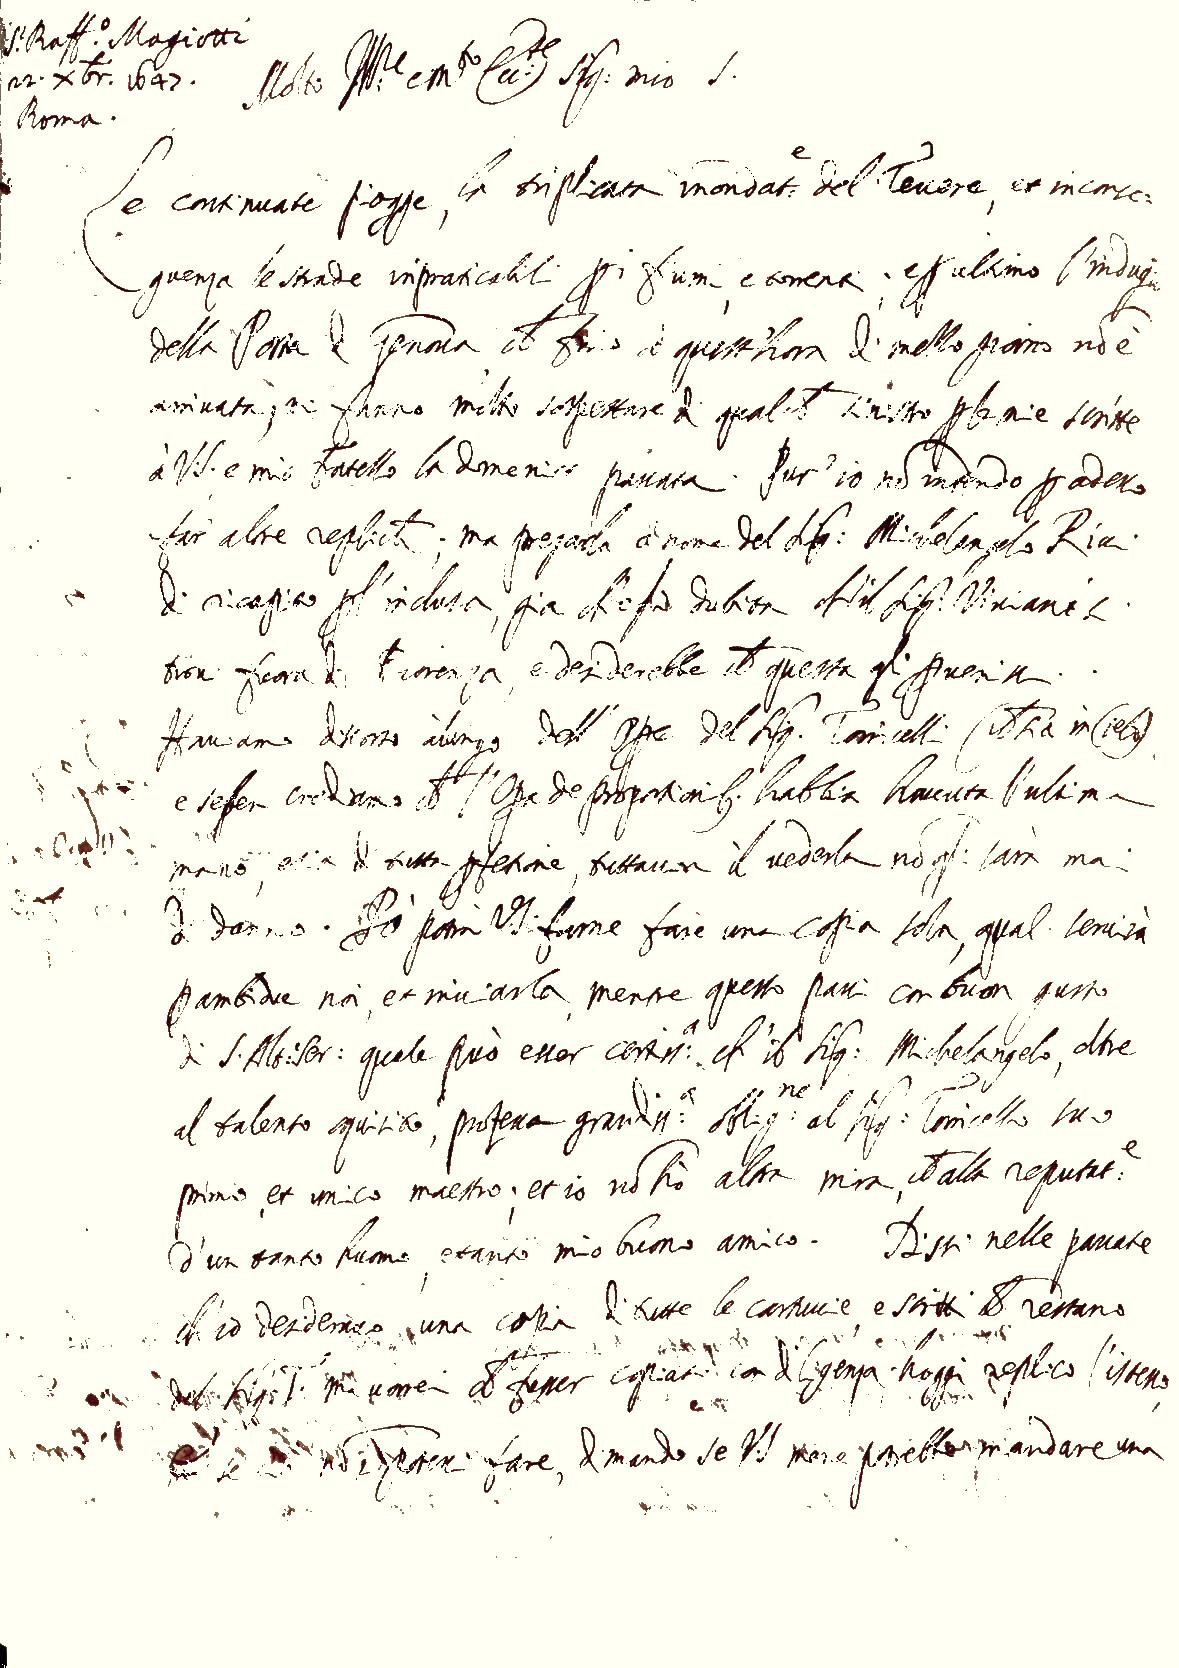 S.r Raff.o Magiotti
22. Xbr. 1647.
Roma.
Molto Ill.re e m.to Ecc.te Sig: mio S.
Le continuate piogge, la triplicata inondat.e del Tevere, et in conse:
guenza le strade inpraticabili p i fiumi, e torrenti; e p ultimo l'indugio
della Posta di Genova, ch fino à quest'hora di mezzo giorno nō è
arrivata; mi fanno molto sospettare di qualch sinistro p le mie scritte
à VS. e mio fratello la domenica passata. Pur' io nō intendo p adesso
far altre replich; ma pregarla à nome del Sig: Michelangelo Ricci
di ricapito p l'inclusa, già ch'esso dubita ch'il Sig: Viviani si
trovi fuora di Fiorenza, e desiderebbe ch questa gli pvenisse.
Haviamo discorso à lungo dell' opre del Sig. Torricelli (ch sia in Cielo)
e se ben crediamo ch l'Opa de proportionib. habbia havuta l'ultima
mano, e sia di tutta pfetione, tuttavia il vederla nō gli sarà mai
di danno. Pò potrà VS. farne fare una copia sola, qual servirà
p ambidue noi, et inviarla, mentre questo passi con buon gusto
di S. Alt: Ser: quale può esser certiss.a ch'il Sig: Michelangelo, oltre
al talento squisito, professa grandiss.a oblig.ne al Sig: Torricello suo
primo, et unico maestro; et io nō hò altra mira, ch alla reputat.e
d'un tanto huomo, e tanto mio buono amico. Dissi nelle passate
ch'io desideravo una copia di tutte le cartucie, e scritti ch restano
del Sig. T. mi vorrei ch fusser copiati con diligenza. hoggi replico l'istesso,
e se nō si potesse fare, dimando se VS me ne potrebbe mandare una